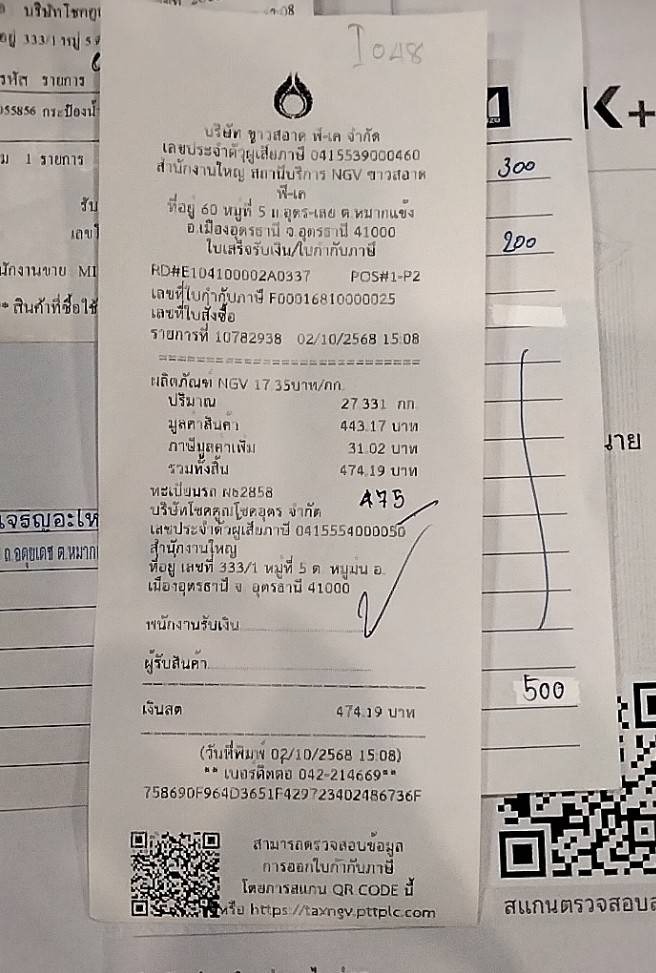 I048
บริษัท ขาวสอาด พี-เค จำกัด
เลขประจำตัวผู้เสียภาษี 0415539000460
สำนักงานใหญ่ สถานีบริการ NGV ขาวสอาด
พี-เค
ที่อยู่ 60 หมู่ที่ 5 ถ.อุดร-เลย ต.หมากแข้ง
อ.เมืองอุดรธานี จ.อุดรธานี 41000
ใบเสร็จรับเงิน/ใบกำกับภาษี
RD#E104100002A0337 POS#1-P2
เลขที่ใบกำกับภาษี F00016810000025
เลขที่ใบสั่งซื้อ
รายการที่ 10782938 02/10/2568 15:08
============================
ผลิตภัณฑ์ NGV 17.35บาท/กก.
ปริมาณ 27.331 กก
มูลค่าสินค้า 443.17 บาท
ภาษีมูลค่าเพิ่ม 31.02 บาท
รวมทั้งสิ้น 474.19 บาท
ทะเบียนรถ นข2858
475
บริษัทโชคคูณโชคอุดร จำกัด
เลขประจำตัวผู้เสียภาษี 0415554000050
สำนักงานใหญ่
ที่อยู่ เลขที่ 333/1 หมู่ที่ 5 ต. หมูม่น อ.
เมืองอุดรธานี จ. อุดรธานี 41000
พนักงานรับเงิน
ผู้รับสินค้า
เงินสด 474.19 บาท
(วันที่พิมพ์ 02/10/2568 15:08)
** เบอร์ติดต่อ 042-214669**
758690F964D3651F429723402486736F
สามารถตรวจสอบข้อมูล
การออกใบกำกับภาษี
โดยการสแกน QR CODE นี้
หรือ https://taxngv.pttplc.com
333/1 หมู่ 5
รหัส รายการ
055856 กระป๋องน้ำ
1 รายการ
พนักงานขาย MI
** สินค้าที่ซื้อไช้
K+
300
200
500
สแกนตรวจสอบ